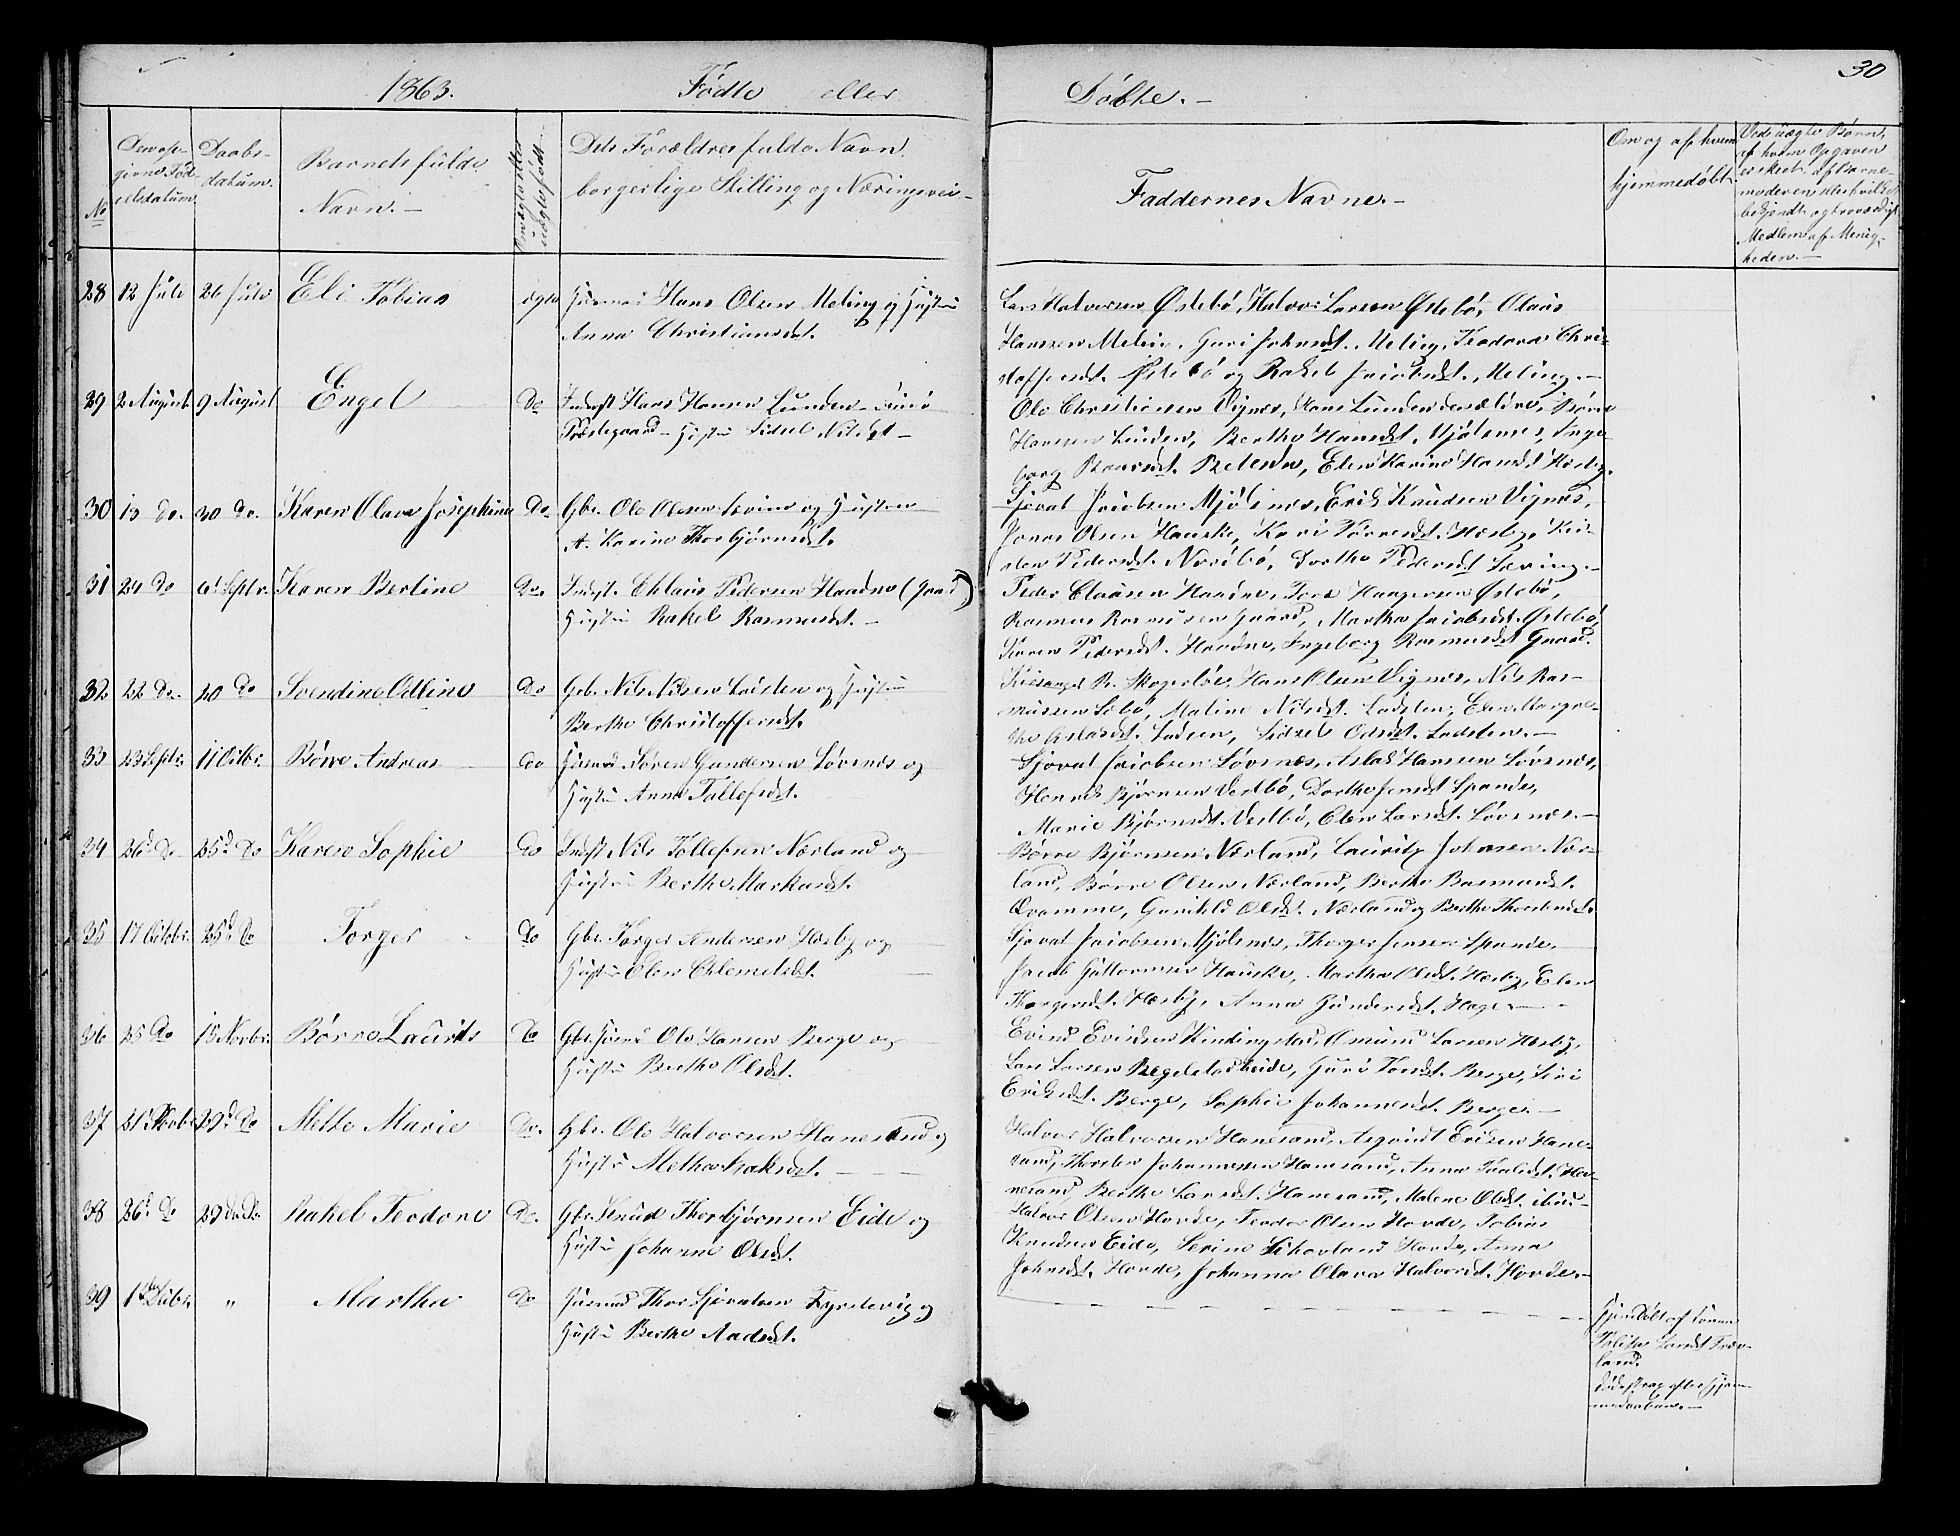 1863. Födte eller Döbte. -
30
No
Den opgivne Födselsdatum
Daabsdatum.
Barnets fulde Navn. -
Om ægte eller uægte födt.
Dets Forældres fulde Navn, borgerlige Stilling og Næringsvei. -
Faddernes Navne. -
Om og af hvem hjemmedöbt
Ved uægte Börn, af hvem Opgaven er skeet, af Barnemoderen eller hvilket bekjendt og troværdigt Medlem af Menigheden. -
28 12 Juli 26 Juli Eli Tobias ægte Huusmd Hans Olsen Meling og Hustru
Anna Christiansdt.
Lars Halvorsen Östebö, Halvor Larsen Östebö, Olaus
Hanssen Meling, Guri Johnsdt. Meling, Teodora Chri-
stoffersdt. Östebö og Rakel Jacobsdt. Meling. -
29 2 August 9 August Engel Do Indst Hans Hansen Lunden
Præstegaard - Hustru Sidsel Nilsdt -
Ole Christiansen Vignes, Hans Lunden den ældre, Börre
Hanssen Lunden, Berthe Hansdt. Mjölsnes, Inge-
borg Elen Karine Hansdt Hæsby.
30 13 do. 30 Do. Karen Olava Josephine Do Gbr. Ole Olesen Sæving og Hustru
A. Karine Thorbjörnsdt.
Sjovat Jacobsen Mjölsnes, Erik Knudsen Vignes,
Jonas Olsen Hauske, Kari Törresdt. Hæsby, Kir-
sten Pedersdt. Norébö, Dorthe Pedersdt Sæving. -
31 24 Do 6t Septr. Karen Bertine Do. Indst. Chlaus Pedersen Haadne (Gaard)
Hustru Rakel Rasmusdt. -
Peder Clausen Haadne, Tore Haagensen Östebö,
Rasmus Rasmusen Gaard, Martha Jacobsdt. Östebö,
Karen Pedersdt. Haadne, Ingeborg Rasmusdt Gaard.
32 22 Do. 20 Do Svendine Odline Do Gbr. Nils Nilsen Ladsten og Hustru
Berthe Christoffersdt.
R. Skogerböe, Hans Olsen Vignes, Nils Ras-
mussen Sæbö, Maline Nilsdt. Ladsten, Elen Margre-
the Aslasdt. Sidsel Odsdt. Ladsten. -
33 23 Septr. 11 Octbr. Börre Andreas do Huusmd Sören Gundersen Lövsnes og
Hustru Anna Tollefsdt.
Sjovat Jacobsen Lövsnes, Aslak Hansen Lövsnes,
Henrik Björnsen Vestbö, Dorthe Jensdt Spande,
Marie Björnsdt. Vestbö, Elen Larsdt. Lövsnes. -
34 26d Do 25d Do Karen Sophie do Indst Nils Tollefsen Nærland og
Hustru Berthe Markusdt.
Börre Björnsen Nærland, Lauritz Johnsen Nær-
land, Börre Olsen Nærland, Berthe Rasmusdt.
Qvamme, Gunild Olsdt. Nærland og Berthe Thorstensdt.
35 17 Octobr. 25d Do Torger Do Gbr. Torger Andersen Hæsby og
Hustru Elen Chlemetsdt.
Sjovat Jacobsen Mjölsnes, Thorger Jensen Spande,
Jacob Guttormsen Hauske, Martha Olsdt. Hæsby, Elen
Thorgersdt. Hæsby, Anna Gundersdt. Hage -
36 25 Do 15 Novbr. Börre Laurits Do Gbr. Ole Hansen Berge og
Hustru Berthe Olsdt.
Evind Evindsen Kindingstad, Omund Larsen Hæsby,
Lars Larsen Regelstadheide, Guri Toresdt. Berge, Siri
Eriksdt. Berge, Sophie Johannesdt. Berge. -
37 31t Octobr 29d Do Mette Marie Do. Gbr. Ole Halvorsen Hanesand og
Hustru Methea Isaksdt.
Halvor Halvorsen Hanesand, Asgaut Eriksen Hane-
sand, Thorsten Johannessen Hanesand, Anna Ha-
nesand, Berthe Larsdt. Hanesand, Malene Olsdt. ibid -
38 26d Do 29 do Do Rakel Teodore Do. Gbr. Knud Thorbjörnsen Eide og
Hustru Johanne Olsdt.
Halvor Olsen Hovde, Teodor Olsen Hovde, Tobias
Knudsen Eide, Serine Hovde, Anna
Johnsdt. Hovde, Johanna Olava Halvorsdt. Hovde. -
39 " Martha Do Huusmd Thor Sjovatsen Fyrstevig og
Hustru Berthe Aadsdt.
Hjemdöbt af
Talitha Larsdt
land.
döde strax efter Hjem-
medaaben. -